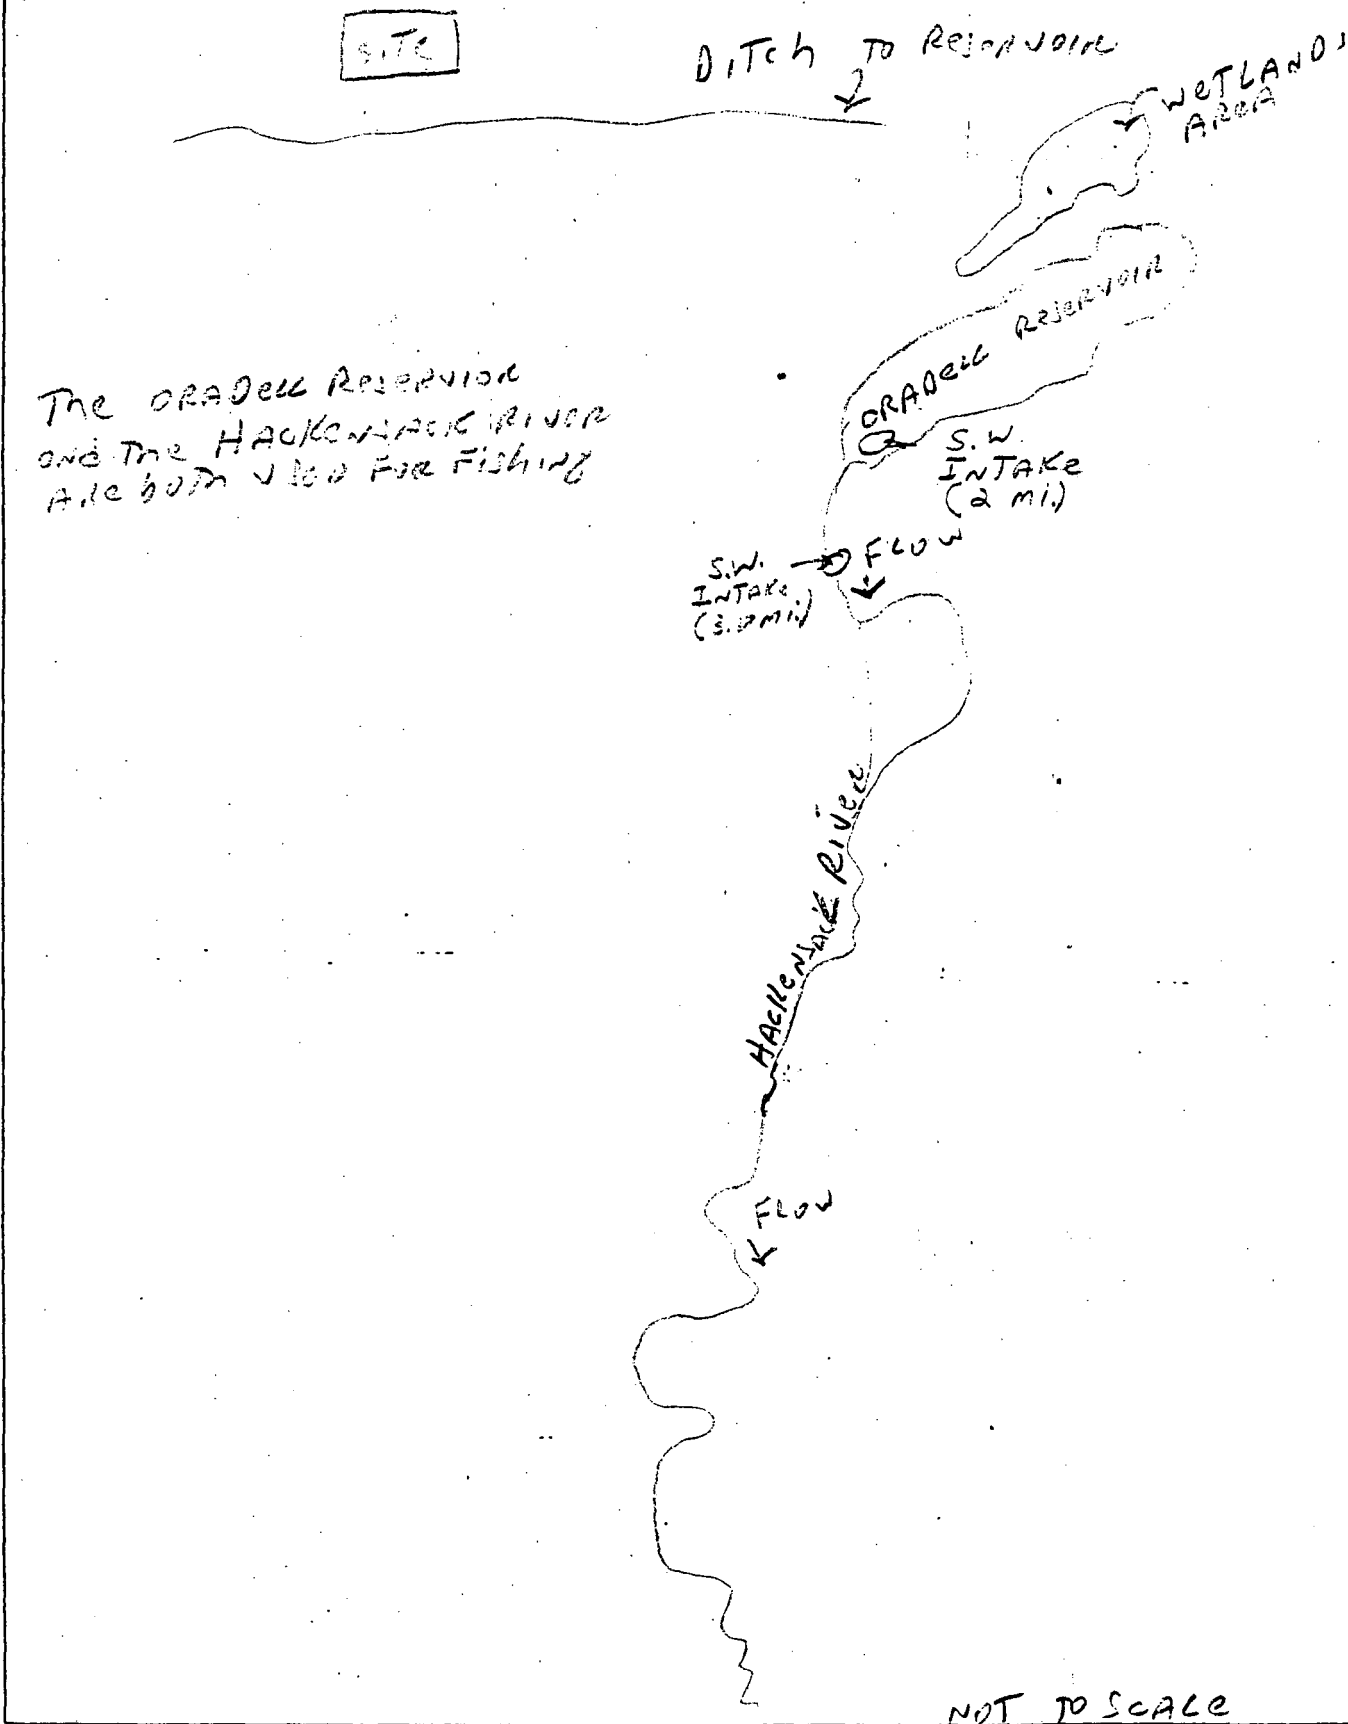 SITE
DITCH TO RESERVOIR
WETLANDS
AREA
ORADELL RESERVOIR
The ORADELL RESERVIOR
AND The HACKENSACK RIVER
ARE BOTH USED FOR FISHING
S.W.
INTAKE
(2 mi.)
FLOW
S.W.
INTAKE
HACKENSACK RIVER
FLOW
NOT TO SCALE